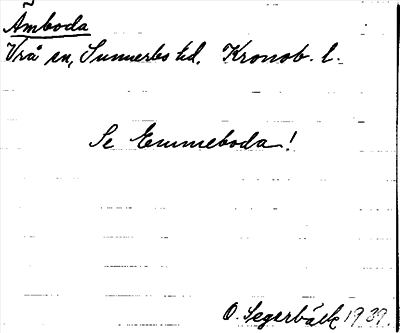 Åmboda
Vrå sn, Sunnerbo hd. Kronob. l.
Se Emmeboda!
O. Segerbäck 1939.